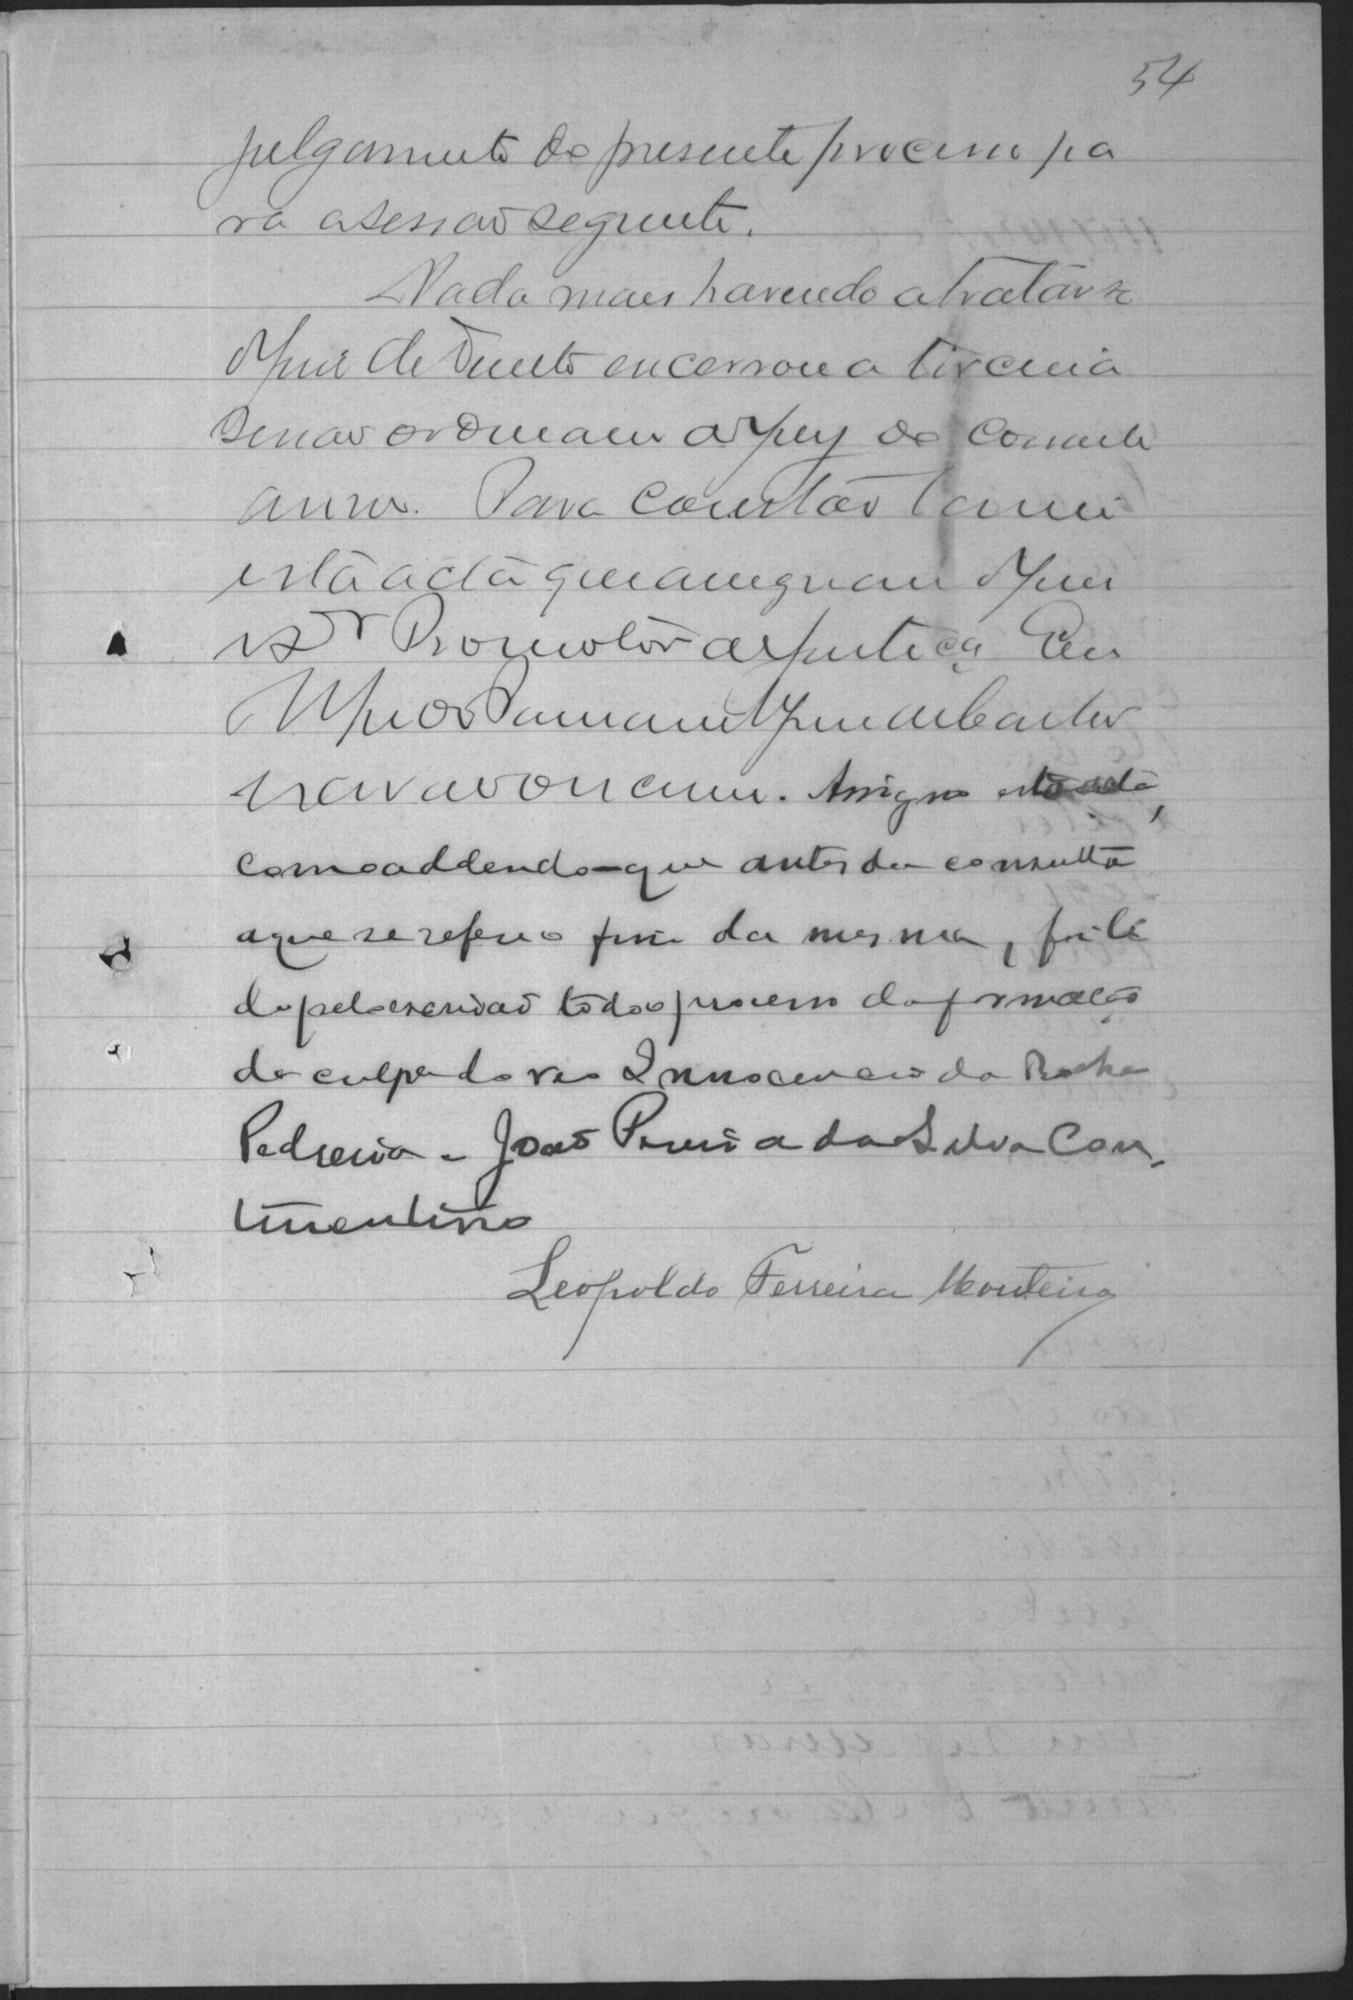 54
julgamento do presente processo pa
ra a sessaõ seguinte.
Nada mais havendo a tratár se
o Juiz de Direito encerrou a terceira
sessaõ ordinaria do Jury do corrente
anno. Para constár lavrei
esta acta que assignam o Juiz
e Dr Promotor de Justiça Eu
escrivaõ a escrevi. Assigno esta acta,
com o addendo - que antes da consulta
a que se refere o fim da mesma, foi li
do pelo escrivaõ todo o processo da formação
da culpa do reo Innocencio da Rocha
Pedreira - João Pereira da Silva Con-
tinentino
Leopoldo Ferreira Monteiro